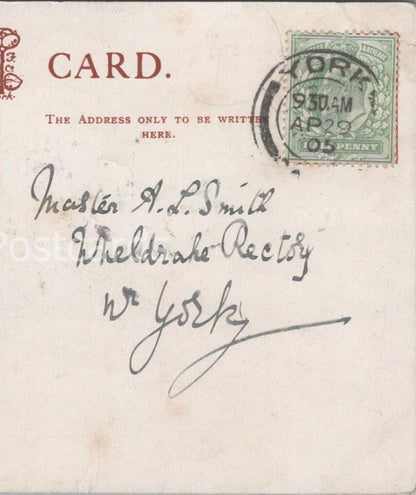 CARD.
THE ADDRESS ONLY TO BE WRITTEN
HERE.
YORK
9 30 AM
AP 29
05
HALF PENNY
Master A. L. Smith
Wheldrake Rectory
Nr York